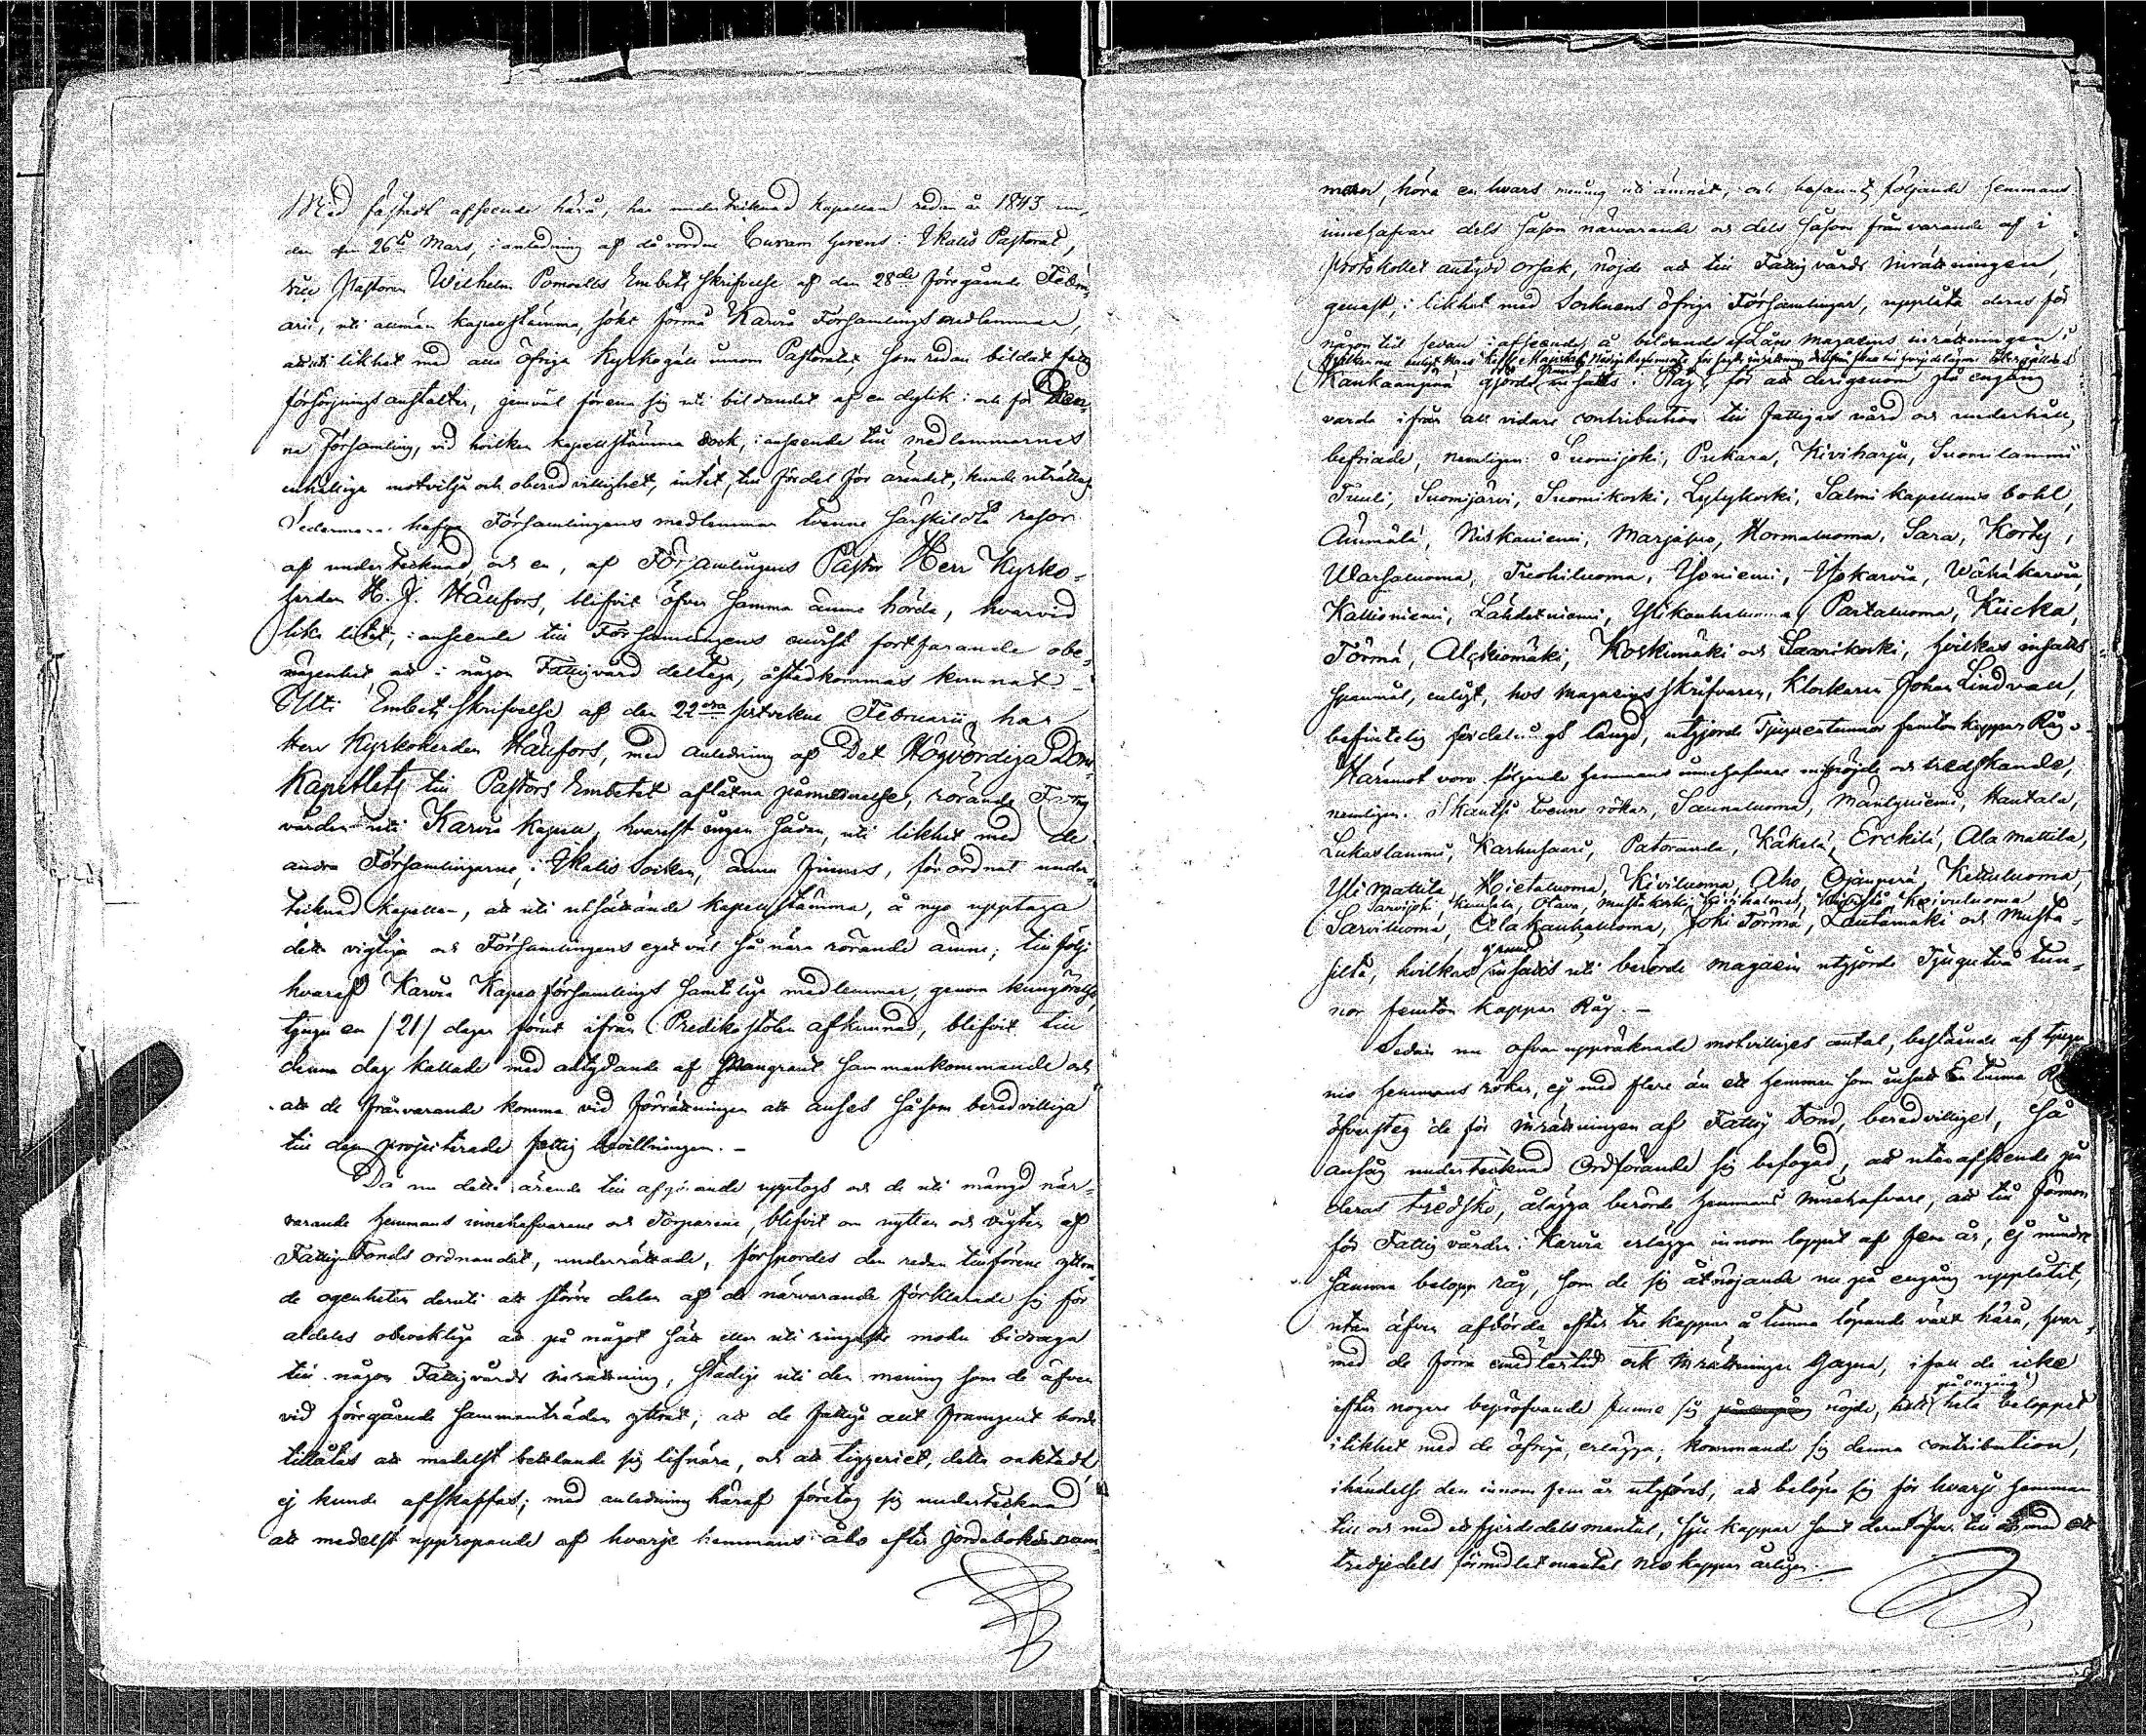 Med fästadt afseende härå, har undertecknad Kapellan redan år 1843 un-
der den 26te Mars, i anledning af då vordne Curam Gerens i Ikalis Pastorat,
Vice Pastoren Wilhelm Pomoells Embets skrifvelse af den 28de föregående Febru-
arii, uti allmän kapellstämma, sökt förmå Karvia Församlings medlemmar,
att i likhet med alla öfriga kyrkogäll innom Pastoratet, som redan bildat fattig
försörjnings anstalter, jemväl förena sig uti bildandet af en dylik i och för Den-
na församling, vid hvilken kapellstämma dock, i anseende till medlemmarnes
enhälliga motvilja och oberedvillighet, intet, till fördel för ärendet, kunde uträttas
Sedermera hafva Församlingens medlemmar tvenne särskildta resor
af undertecknad och en, af Församlingens Pastor Herr Kyrko-
herden H. J. Hänfors, blifvit öfver samma ämne hörda, hvarvid
lika litet, i anseende till Församlingens envist fortfarande obe-
nägenhet att i någon Fattigvård deltaga, åstadkommas kunnat.-
Uti Embets skrifvelse af den 22dra sistvekne Februarii har
Herr Kyrkoherden Hänfors, med anledning af Det Högvördiga Dom
Kapitlets till Pastors Embetet aflåtna påminnelse, rörande Fattig
vården uti Karvia kapell, hvarest ingen sådan, uti likhet med de
andra Församlingarne i Ikalis Socken, ännu finnes, förordnat under-
tecknad Kapellan, att uti utsättande kapellstämma, å nyo upptaga
detta vigtiga och Församlingens eget väl så nära rörande ämne; till följe
hvaraf Karvia Kapellförsamlings samtelige medlemmar, genom kungörelse
tjugu en /21/ dagar förut ifrån Predikostolen afkunnad, blifvit till
denna dag kallade med antydande af mangrant sammankommande och
att de frånvarande komma vid förrättningen att anses såsom beredvilliga
till den projecterade fattig bevillningen.-
Då nu detta ärende till afgörande upptogs och de uti mängd när-
varande hemmans innehafvarene och Torparene, blifvit om nyttan och vigten af
Fattig Fonds ordnandet, underrättade, förspordes den redan tillförene yttra-
de ogenheten deruti att större delen af de närvarande förklarade sig för
aldeles obeveklige att på något sätt eller uti ringaste mohn bidraga
till någon Fattigvårds inrättning, stadige uti den mening som de äfven
vid föregående sammanträden yttrat; att de fattige allt framgent borde
tillåtas att medelst betlande sig lifnära, och att tiggeriet, detta oaktadt
ej kunde afskaffas; med anledning häraf företog sig undertecknad
att medelst uppropande af hvarje hemmans åbo efter jordeboken nam-
men, höra en hvars mening uti ämnet, och befannt följande hemmans
innehafvare dels såsom närvarande och dels såsom frånvarande af i
Protokollet antyde orsak, nöjde att till Fattigvårds inrättningen,
genast, i likhet med Socknens öfrige Församlingar, upplåta deras för
någon tid sedan i afseende å bildande af Låne magazins inrättningen i
Kankaanpää gjorde grund insatts i Råg, för att derigenom på engång
varda ifrån all vidare contribution till fattigas vård och underhåll,
befriade, nemligen: Suomijoki, Pukara, Kiviharju, Suomilammi
Tuuli, Suomijärvi, Suomikoski, Lylykoski, Salmi kapellans bohl,
Ämmälä, Niskaniemi, Marjapuo, Hormaluoma, Sara, Korty,
Warsaluoma, Tuohiluoma, Yoniemi, Ylikarvia, Wähäkarvia,
Kallioniemi, Lähdetniemi, Ylikauhaluoma, Partaluoma, Kiicka,
Törmä, Alckiomäki, Koskimäki och Saarikoski, hvilkas insatts
spanmål, enligt, hos magazins skrifvaren, Klockaren Johan Lindvall,
befintelig fördelnings längd, utgjorde Tjugu en tunnor femton kappar Råg.-
Häremot voro följande hemmans innehafvare missnöjde och tredskande,
nemligen: Skantsi tvenne rökar, Saunaluoma, Mäntyniemi, Hautala,
Lukaslammi, Karhusaari, Patoranda, Käkelä, Erckilä, Ala Mattila,
Yli Mattila, Hietaluoma, Kiviluoma, Aho, Ojanperä, Ketuluoma,
Sarvijoki, Kandala, Otava, Mustakoski,
Sarviluoma, Alakauhaluoma, Joki Törmä, Lautamäki och Musta-
silta, hvilkas grund insatts uti berörde magazin utgjorde Tjugutvå tun-
nor femton kappar Råg.-
Sedan nu ofvan uppräknade motvilliges antal, bestående af tjugu
nio hemmans rökar, ej med flere än ett hemman som insatt En tunna Råg
öfversteg de för inrättningen af Fattig Fond, beredvilliges, så
ansåg undertecknad Ordförande sig befogad, att utan afseende på
deras tredsko, ålägga berörde hemmans innehafvare, att till förmon
för Fattigvården i Karvia erlägga innom loppet af fem år, ej mindre
samma belopp råg, som de sig åtnöjande nu på engång upplåtit,
utan äfven afbörda efter tre kappar å tunna löpande växt härå, hvar-
med de förra emedlertid och inrättningen gagna, ifall de icke
efter nogare bepröfvande funne sig nöjde, på engång hela beloppet
i likhet med de öfriga, erlägga, kommande sig denna contribution,
i händelse den innom fem år utgöres, att belöpa sig för hvarje hemman
till och med ett fjerdedels mantal, sju kappar samt derutöfver till och med ett
tredjedels förmedlat mantal nio kappar årligen.-